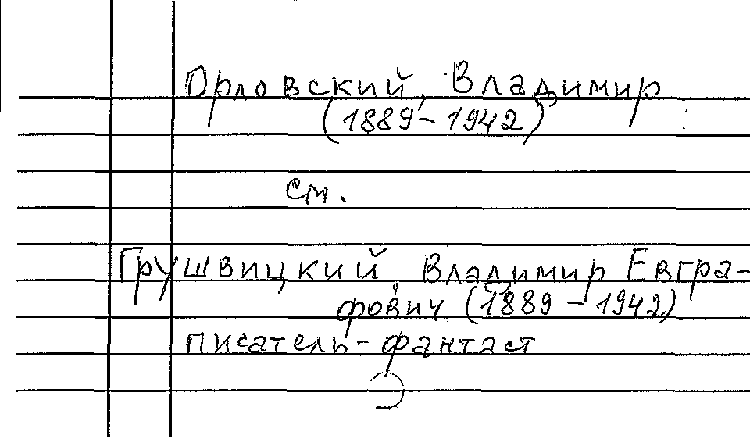 Орловский, Владимир
(1889-1942)
см.
Грушвицкий, Владимир Евгра-
фович (1889-1942)
писатель-фантаст